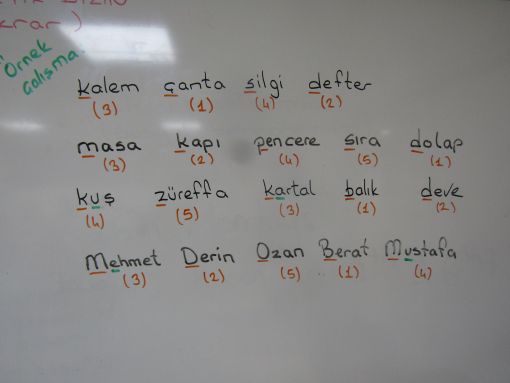 krar)
Örnek
çalışma
kalem çanta silgi defter
(3) (1) (4) (2)
masa kapı pencere sıra dolap
(3) (2) (4) (5) (1)
kuş züreffa kartal balık deve
(4) (5) (3) (1) (2)
Mehmet Derin Ozan Berat Mustafa
(3) (2) (5) (1) (4)